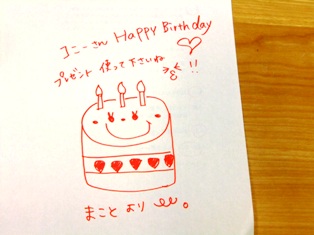 コニーさん Happy Birthday
プレゼント 使って下さいね !!
まこと より